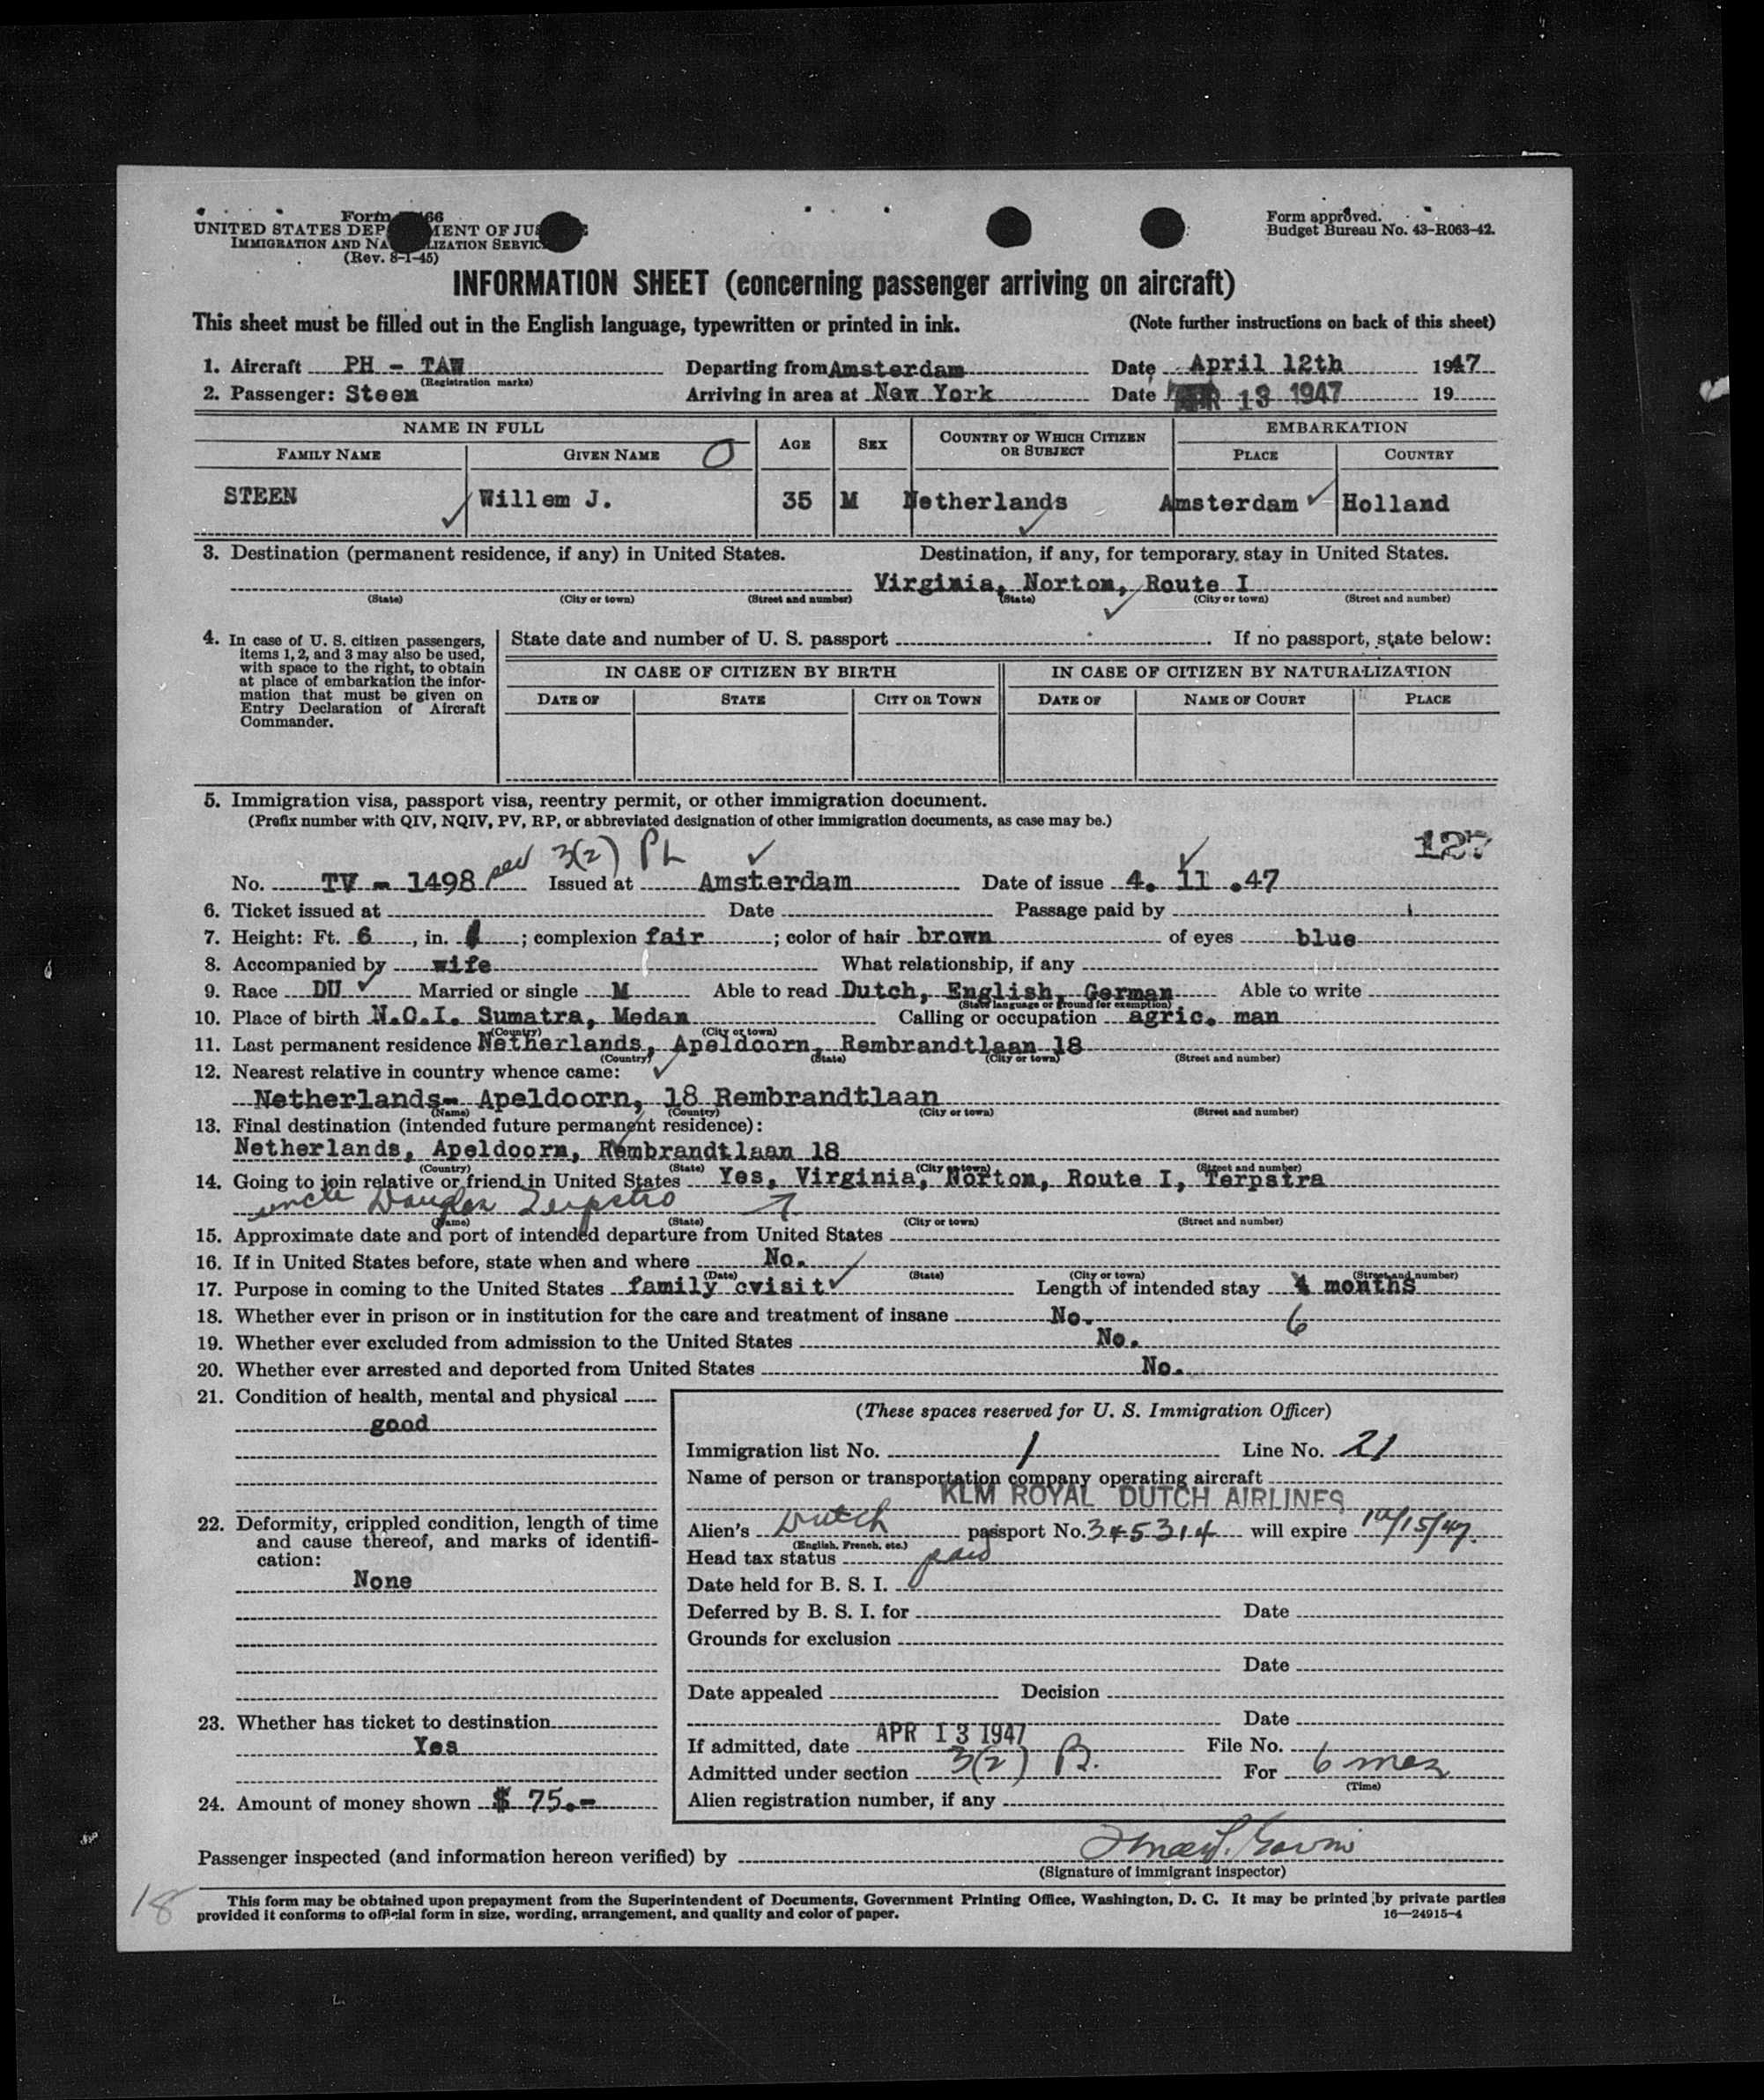 Form
UNITED STATES DEP MENT OF JUS
IMMIGRATION AND NA LIZATION SERVIC
(Rev. 8-1-45)
Form approved.
Budget Bureau No. 43-R063-42.
INFORMATION SHEET (concerning passenger arriving on aircraft)
This sheet must be filled out in the English language, typewritten or printed in ink. (Note further instructions on back of this sheet)
1. Aircraft PH - TAW Departing from Amsterdam Date April 12th 1947
(Registration marks)
2. Passenger: Steen Arriving in area at New York Date APR 13 1947 19
NAME IN FULL AGE SEX COUNTRY OF WHICH CITIZEN OR SUBJECT EMBARKATION
FAMILY NAME GIVEN NAME PLACE COUNTRY
STEEN Willem J. 35 M Netherlands Amsterdam Holland
3. Destination (permanent residence, if any) in United States. Destination, if any, for temporary stay in United States.
Virginia, Norton, Route I
(State) (City or town) (Street and number) (State) (City or town) (Street and number)
4. In case of U. S. citizen passengers, items 1, 2, and 3 may also be used, with space to the right, to obtain at place of embarkation the information that must be given on Entry Declaration of Aircraft Commander.
State date and number of U. S. passport . If no passport, state below:
IN CASE OF CITIZEN BY BIRTH IN CASE OF CITIZEN BY NATURALIZATION
DATE OF STATE CITY OR TOWN DATE OF NAME OF COURT PLACE
5. Immigration visa, passport visa, reentry permit, or other immigration document.
(Prefix number with QIV, NQIV, PV, RP, or abbreviated designation of other immigration documents, as case may be.)
3(2) 127
No. TV - 1498 Issued at Amsterdam Date of issue 4. 11 .47
6. Ticket issued at Date Passage paid by
7. Height: Ft. 6, in. ; complexion fair; color of hair brown of eyes blue
8. Accompanied by wife What relationship, if any
9. Race DU Married or single M Able to read Dutch, English, German Able to write
(State language or ground for exemption)
10. Place of birth N.O.I. Sumatra, Medan Calling or occupation agric. man
(Country) (City or town)
11. Last permanent residence Netherlands, Apeldoorn, Rembrandtlaan 18
(Country) (State) (City or town) (Street and number)
12. Nearest relative in country whence came:
Netherlands- Apeldoorn, 18 Rembrandtlaan
(Name) (Country) (City or town) (Street and number)
13. Final destination (intended future permanent residence):
Netherlands, Apeldoorn, Rembrandtlaan 18
(Country) (State) (City or town) (Street and number)
14. Going to join relative or friend in United States Yes, Virginia, Norton, Route I, Terpstra
uncle
(Name) (State) (City or town) (Street and number)
15. Approximate date and port of intended departure from United States
16. If in United States before, state when and where No.
(Date) (State) (City or town) (Street and number)
17. Purpose in coming to the United States family cvisit Length of intended stay 4 months
6
18. Whether ever in prison or in institution for the care and treatment of insane No.
19. Whether ever excluded from admission to the United States No.
20. Whether ever arrested and deported from United States No.
21. Condition of health, mental and physical
good
22. Deformity, crippled condition, length of time and cause thereof, and marks of identification:
None
23. Whether has ticket to destination
Yes
24. Amount of money shown $ 75.-
(These spaces reserved for U. S. Immigration Officer)
Immigration list No. 1 Line No. 21
Name of person or transportation company operating aircraft
KLM ROYAL DUTCH AIRLINES
Alien's Dutch passport No. 345314 will expire 10/15/47.
(English, French, etc.)
Head tax status paid
Date held for B. S. I.
Deferred by B. S. I. for Date
Grounds for exclusion
Date
Date appealed Decision
Date
If admitted, date APR 13 1947 File No.
Admitted under section 3(2) For 6 mos
(Time)
Alien registration number, if any
Passenger inspected (and information hereon verified) by
(Signature of immigrant inspector)
18
This form may be obtained upon prepayment from the Superintendent of Documents, Government Printing Office, Washington, D. C. It may be printed by private parties
provided it conforms to official form in size, wording, arrangement, and quality and color of paper. 16—24915-4